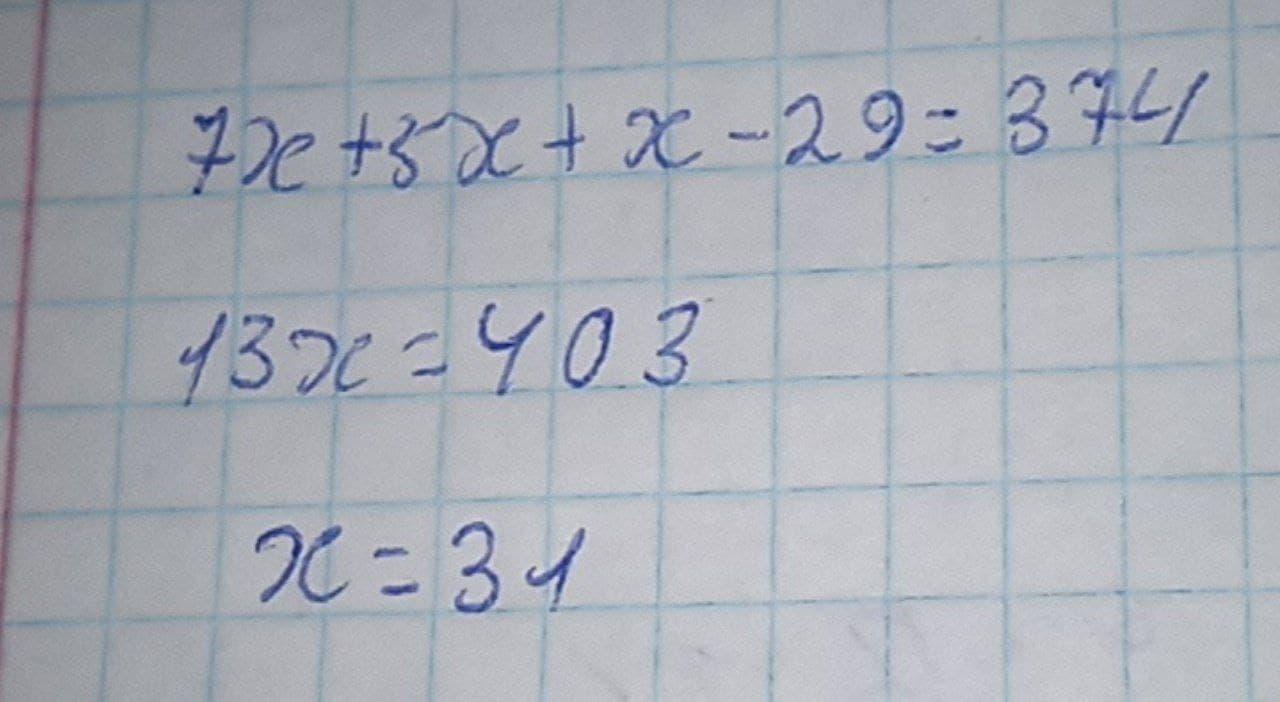 7x+5x+x-29=374
13x=403
x=31